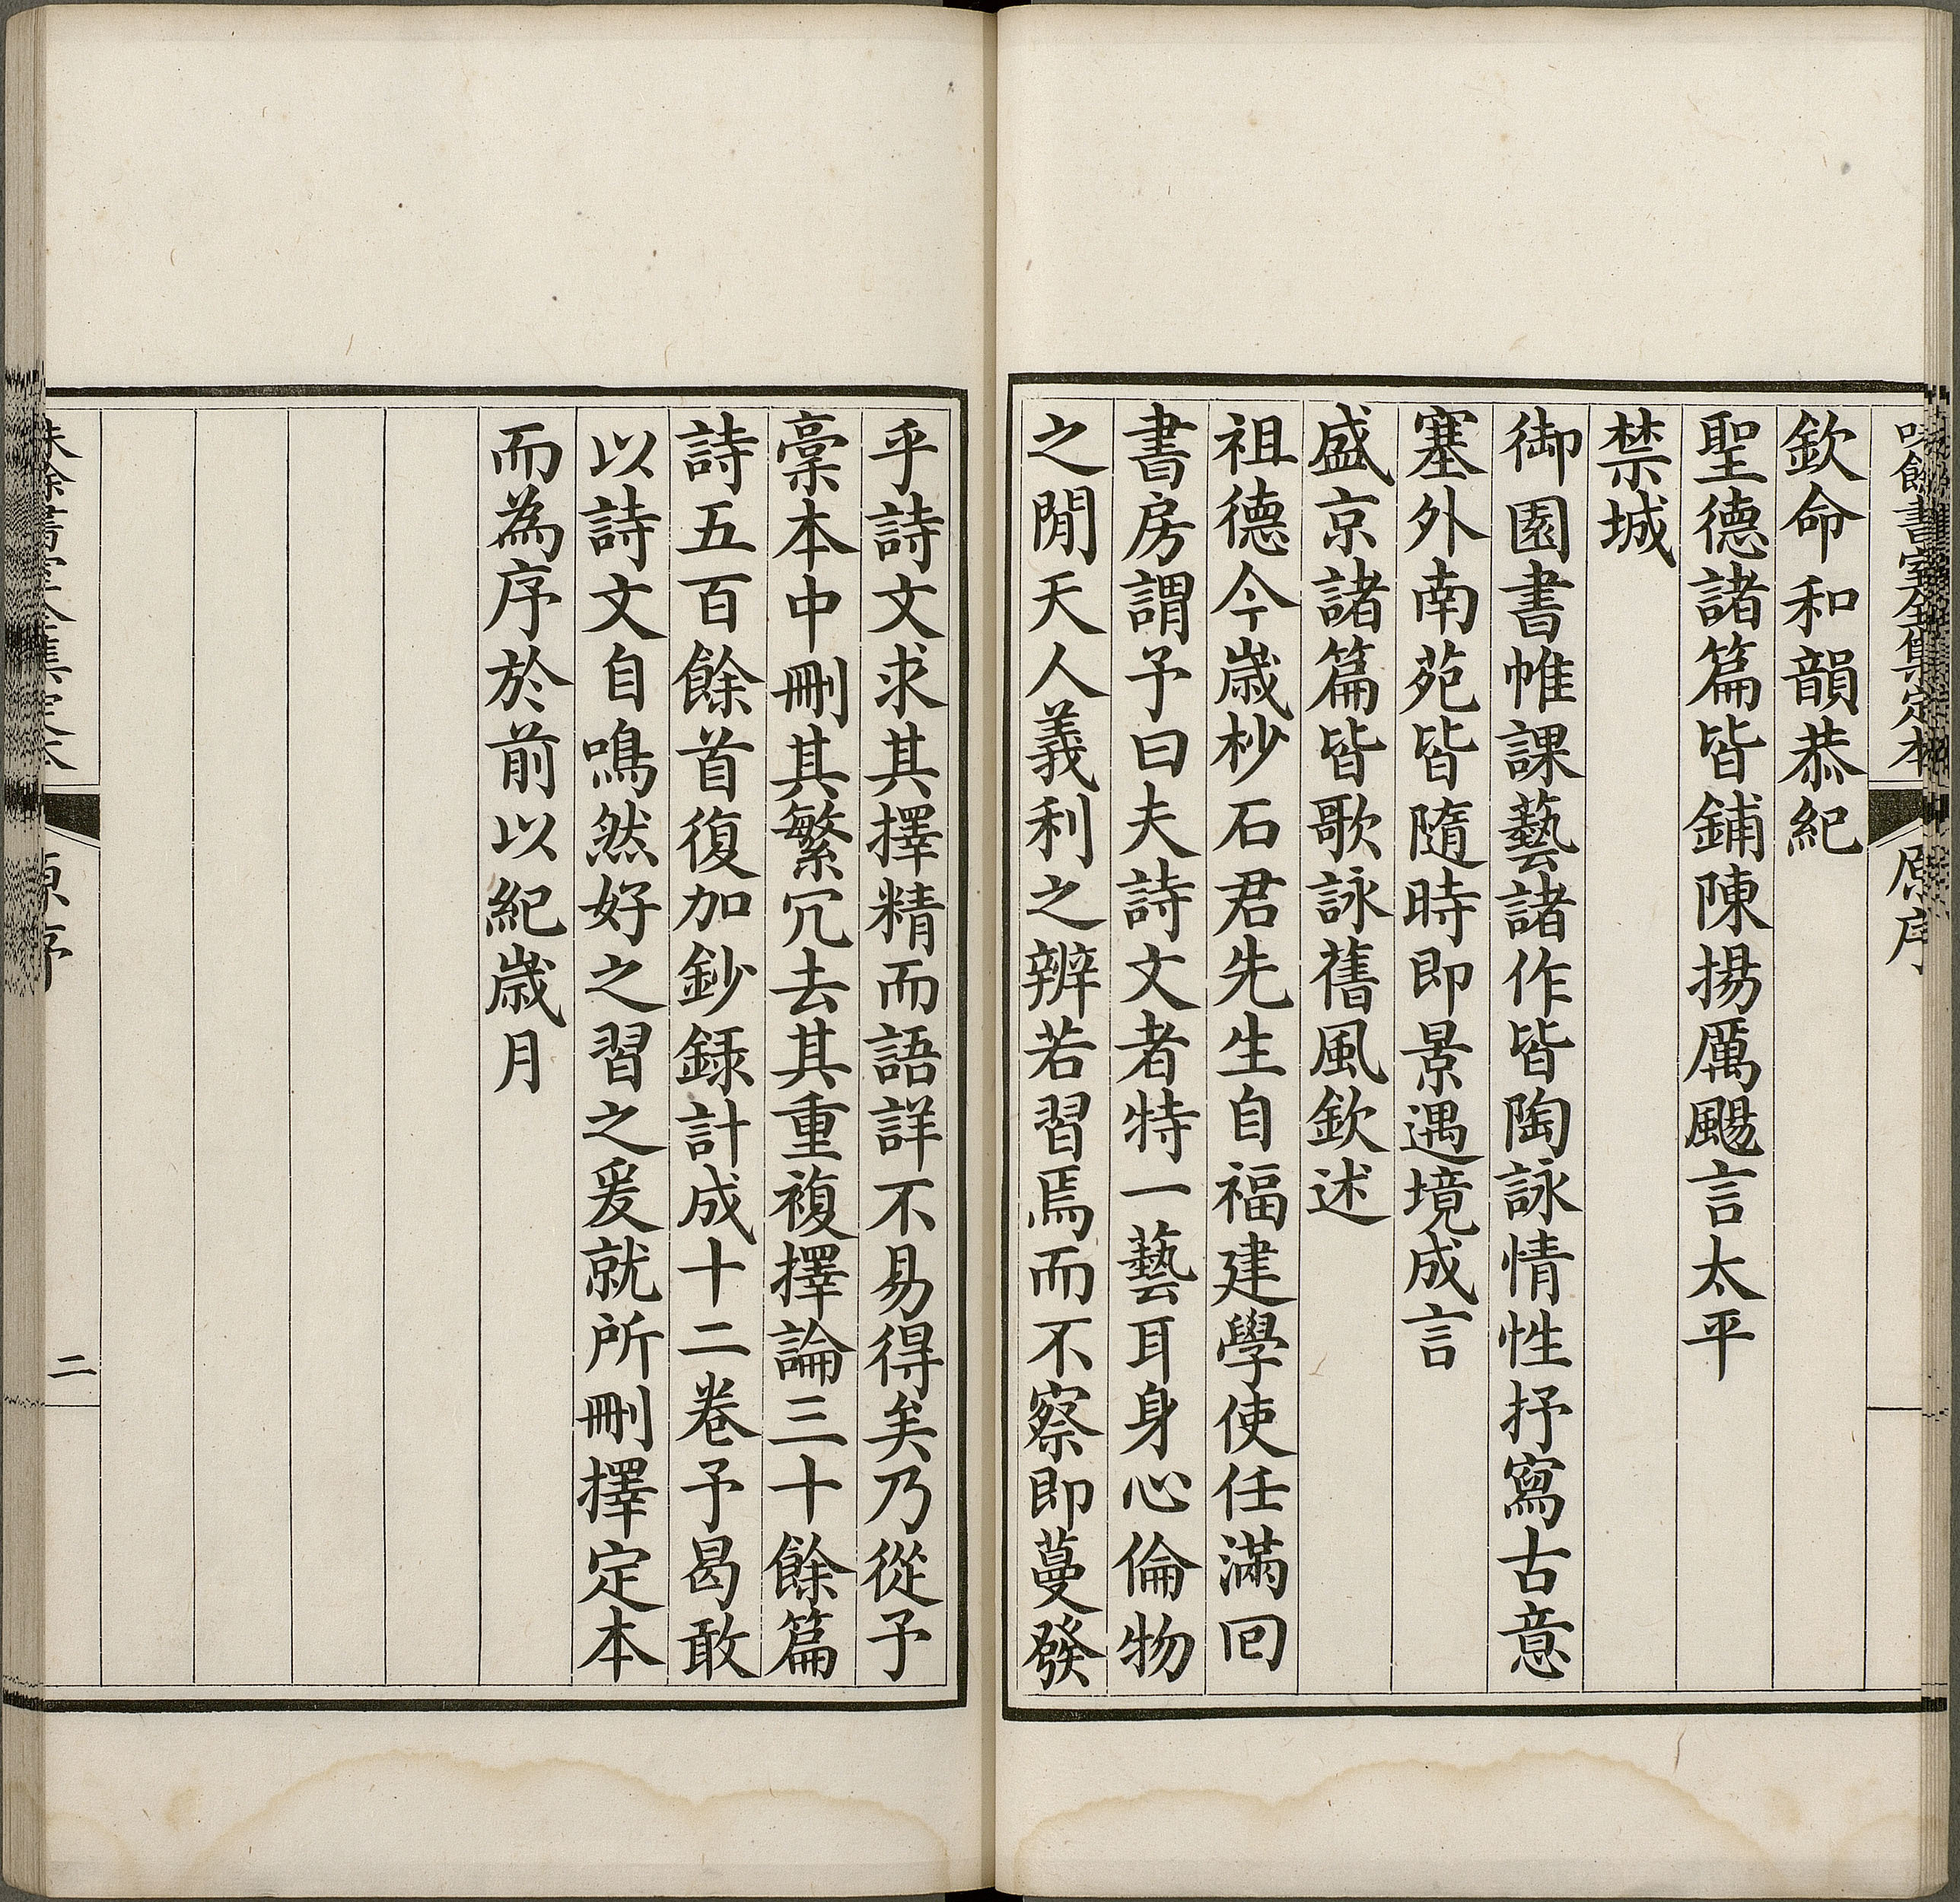 味餘書室全集定本 原序
欽命和韻恭紀
聖德諸篇皆鋪陳揚厲颺言太平
禁城
御園書帷課藝諸作皆陶詠情性抒寫古意
塞外南苑皆隨時即景遇境成言
盛京諸篇皆歌詠舊風欽述
祖德今歲杪石君先生自福建學使任滿回
書房謂予曰夫詩文者特一藝耳身心倫物
之閒天人義利之辨若習焉而不察即蔓發
乎詩文求其擇精而語詳不易得矣乃從予
稾本中刪其繁冗去其重複擇論三十餘篇
詩五百餘首復加鈔錄計成十二卷予曷敢
以詩文自鳴然好之習之爰就所刪擇定本
而為序於前以紀歲月
味餘書室全集定本 原序 二